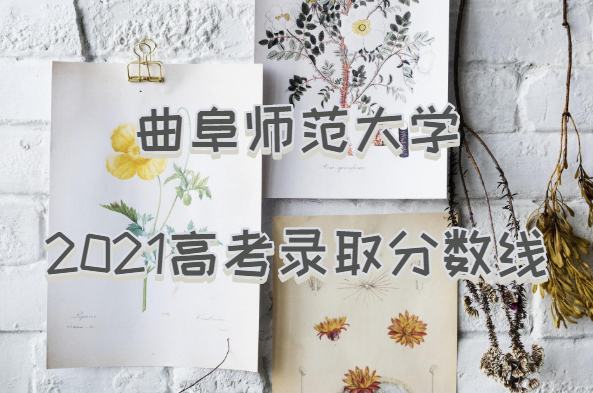 曲阜师范大学
2021高考录取分数线